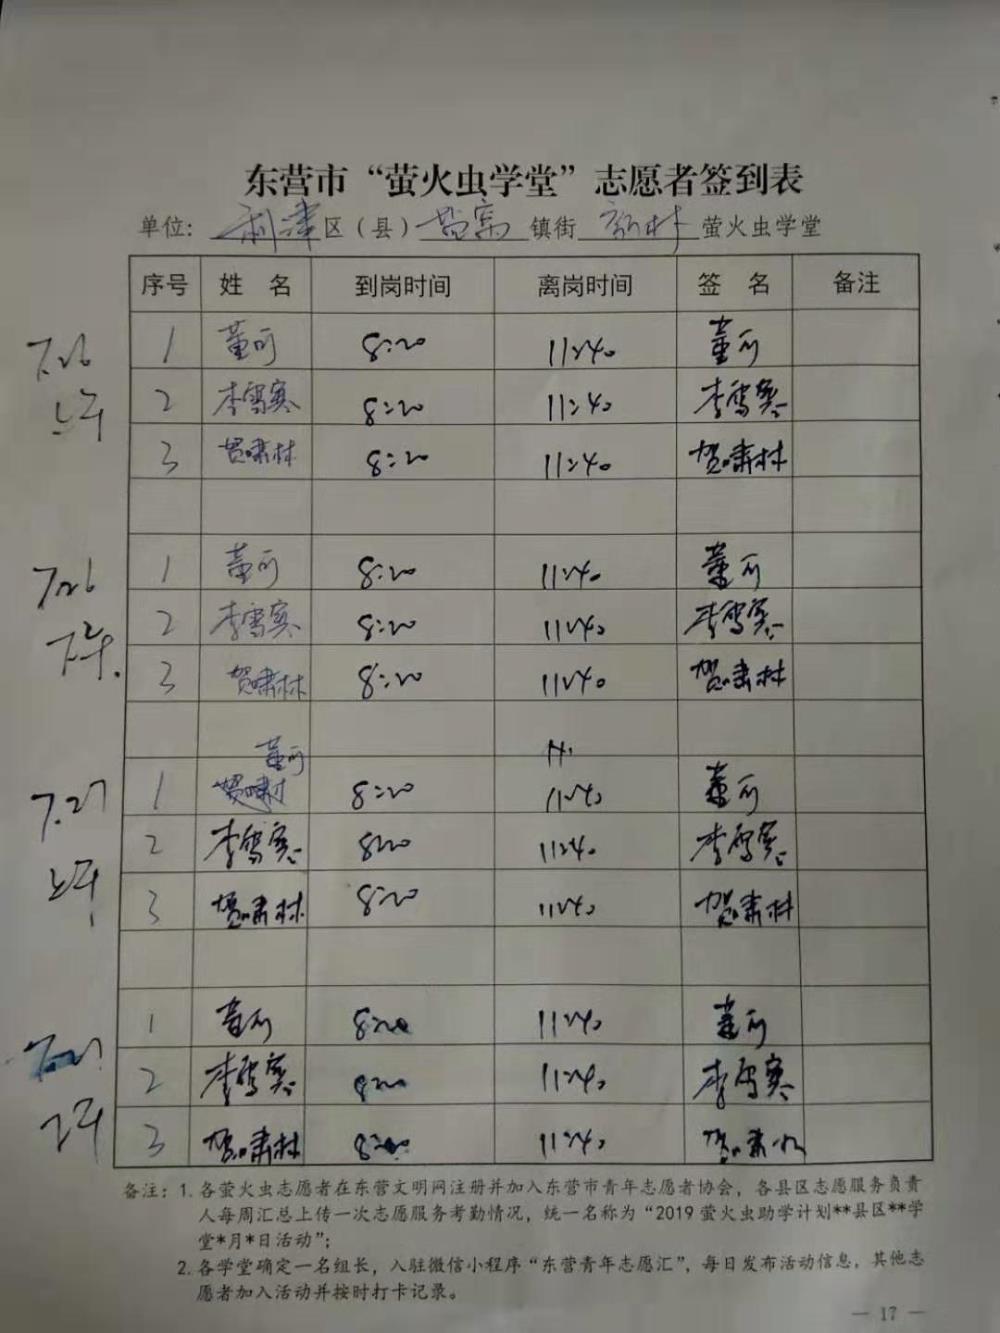 东营市“萤火虫学堂”志愿者签到表
单位: 利津区(县)盐窝镇街新村萤火虫学堂
序号 姓 名 到岗时间 离岗时间 签 名 备注
7.26
上午
1 董可 8:20 11:40 董可
2 李雪寒 8:20 11:40 李雪寒
3 贺啸林 8:20 11:40 贺啸林
7.26
下午.
1 董可 8:20 11:40 董可
2 李雪寒 8:20 11:40 李雪寒
3 贺啸林 8:20 11:40 贺啸林
7.27
上午
董可
1 8:20 11:40 董可
2 李雪寒 8:20 11:40 李雪寒
3 贺啸林 8:20 11:40 贺啸林
7.27
1 董可 8:20 11:40 董可
2 李雪寒 8:20 11:40 李雪寒
3 贺啸林 8:20 11:40 贺啸林
备注: 1. 各萤火虫志愿者在东营文明网注册并加入东营市青年志愿者协会，各县区志愿服务负责
人每周汇总上传一次志愿服务考勤情况，统一名称为“2019 萤火虫助学计划**县区**学
堂*月*日活动”;
2. 各学堂确定一名组长，入驻微信小程序“东营青年志愿汇”，每日发布活动信息，其他志
愿者加入活动并按时打卡记录。
— 17 —